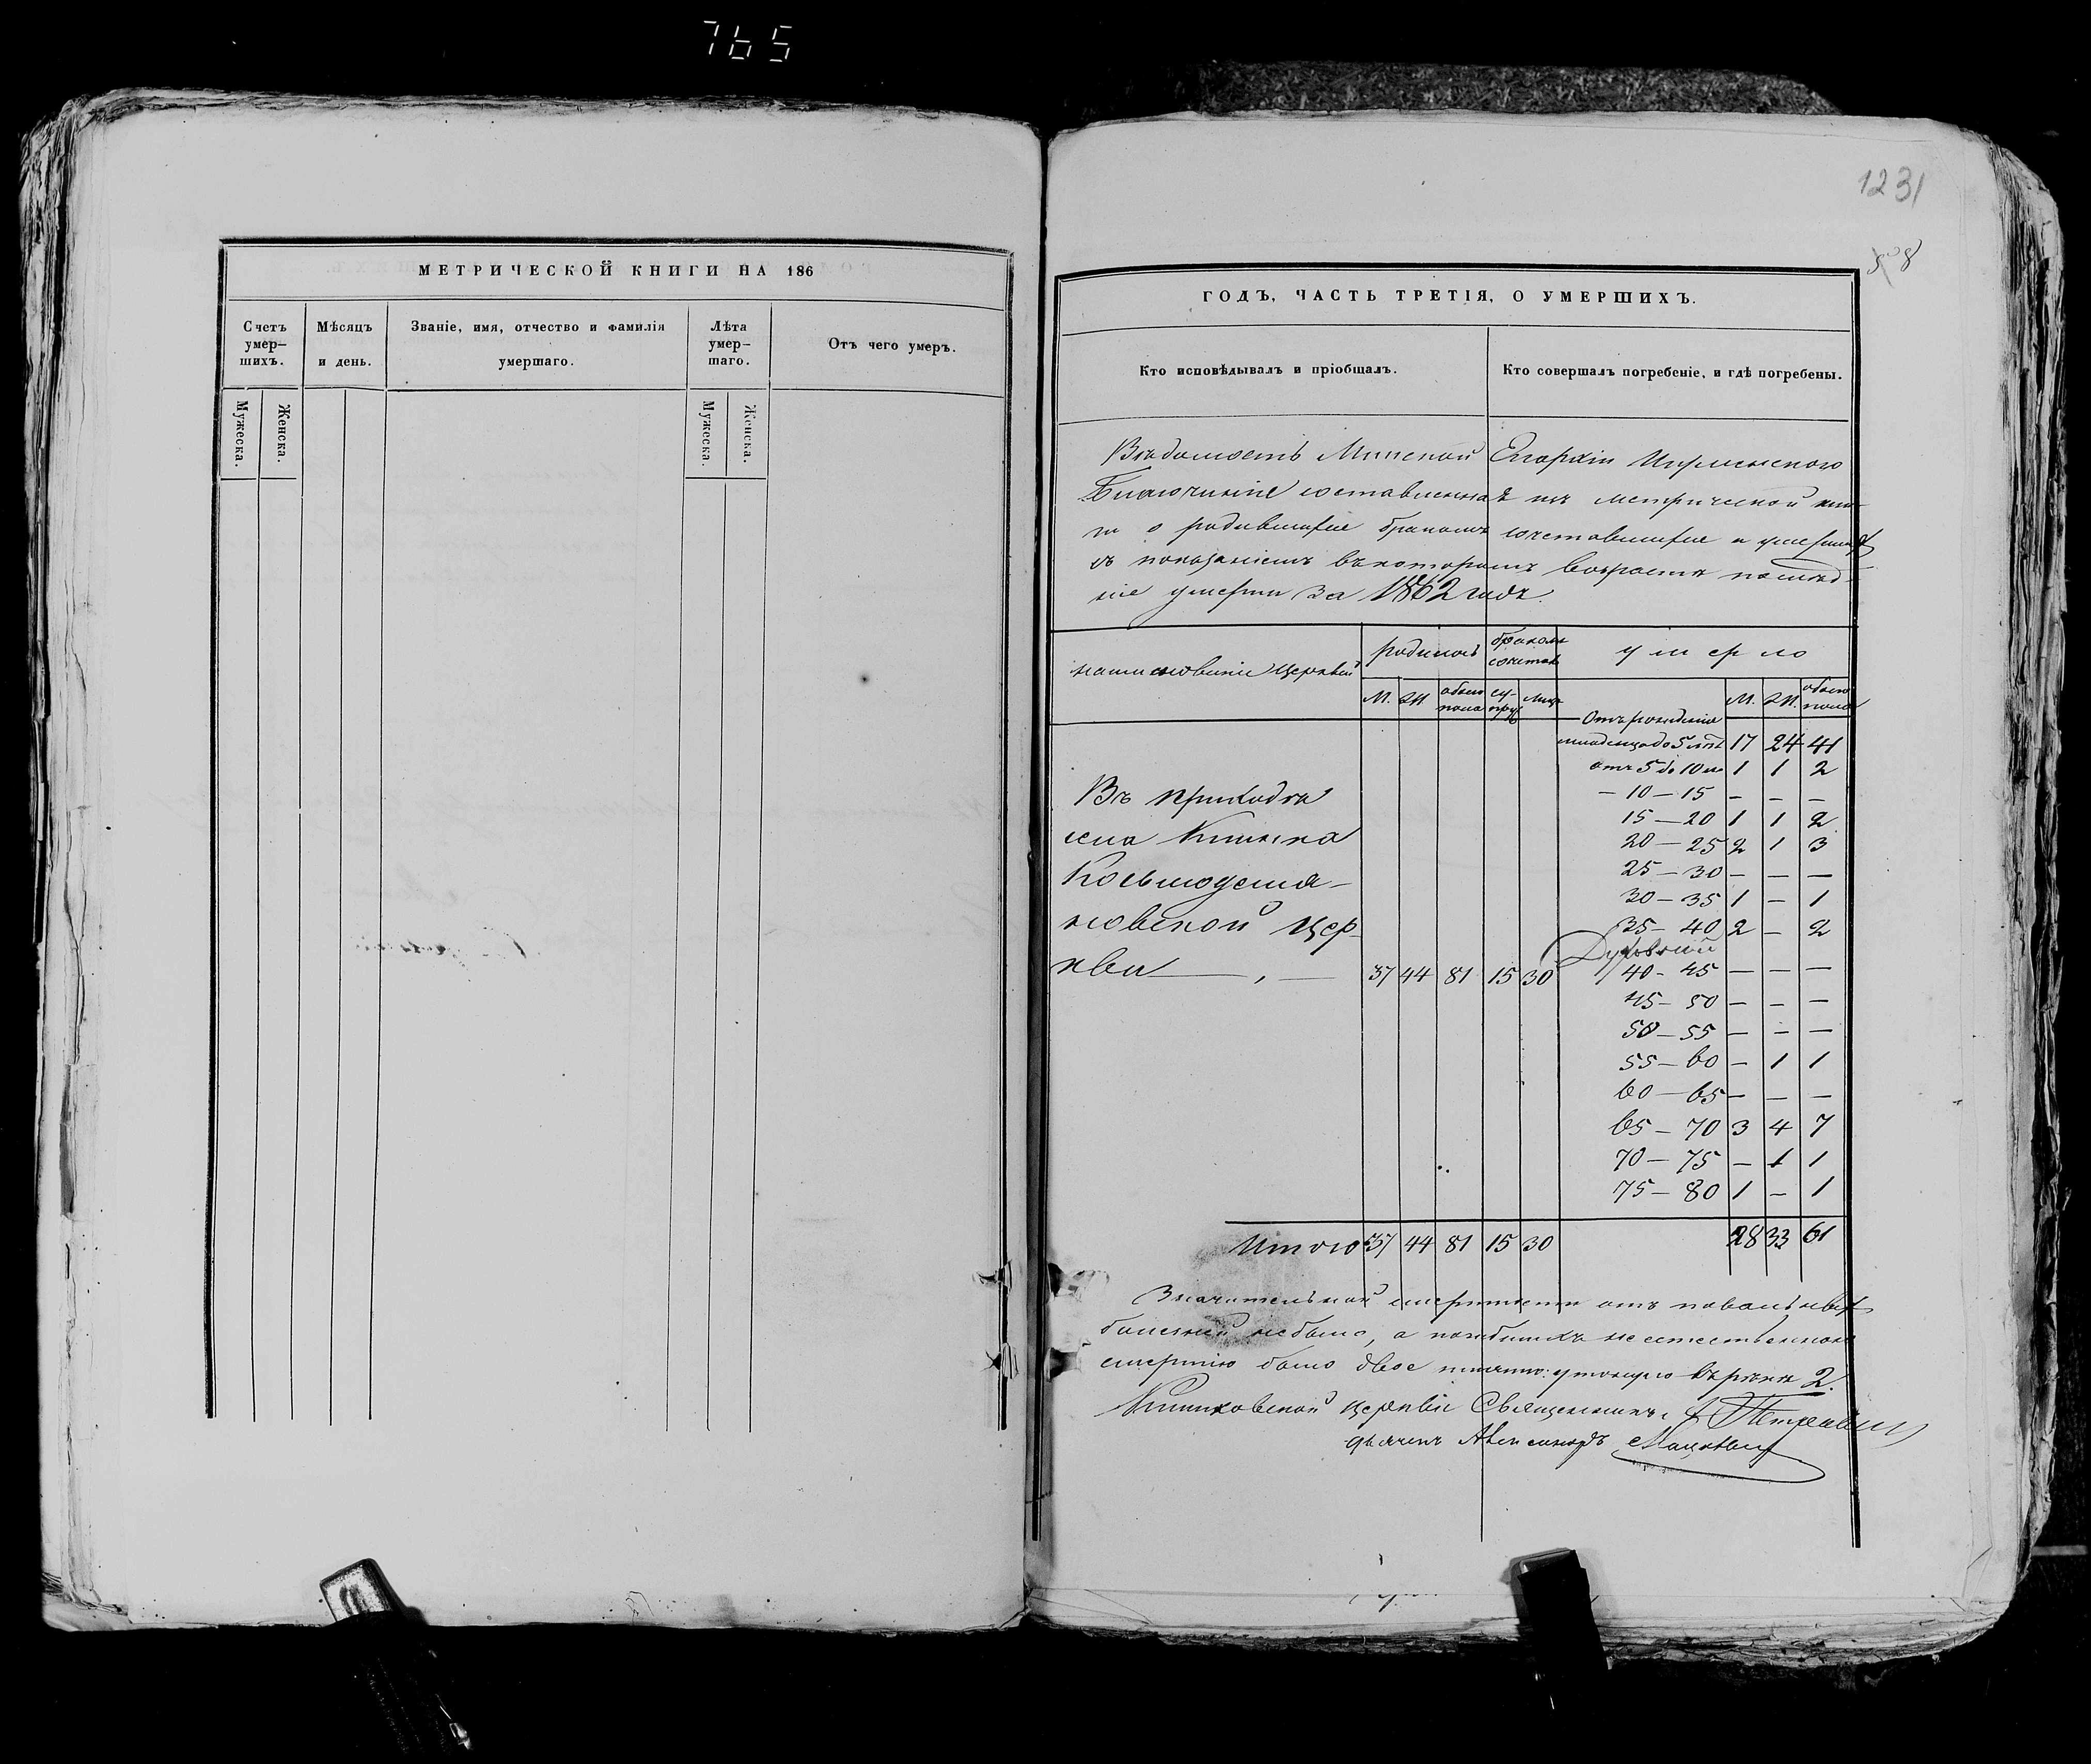 765
МЕТРИЧЕСКОЙ КНИГИ НА 186
Счетъ умер-шихъ.
Мѣсяцъ и день.
Званіе, имя, отчество и фамилія умершаго.
Лѣта умер-шаго.
Отъ чего умеръ.
Мужеска. Женска.
Мужеска. Женска.
1231
8
ГОДЪ, ЧАСТЬ ТРЕТІЯ, О УМЕРШИХЪ.
Кто исповѣдывалъ и пріобщалъ.
Кто совершалъ погребеніе, и гдѣ погребены.
Вѣдомость Минской Епархіи Игуменскаго
Благочинія составленная изъ метрической кни-
ги о родившихся бракомъ сочетавшихся и умершихъ
съ показаніемъ въ которомъ возрастѣ послѣд-
ніе умерли за 1862 годъ.
наименованіе Церквей
родилось
бракомъ сочетал
умерло
М. Ж. обоего пола
су-пруж лицъ
М. Ж. обоего пола
Отъ рожденія
младенца до 5 лѣтъ 17 24 41
отъ 5 до 10 1 1 2
– 10 – 15 – – –
15 – 20 1 1 2
20 – 25 2 1 3
25 – 30 – – –
30 – 35 1 – 1
35 – 40 2 – 2
Въ приходѣ
села
Косьмодемія-
новской Цер-
кви 37 44 81 15 30
40 – 45 – – –
45 – 50 – – –
50 – 55 – – –
55 – 60 – 1 1
60 – 65 – – –
65 – 70 3 4 7
70 – 75 – 1 1
75 – 80 1 – 1
Итого 37 44 81 15 30 28 33 61
Значительной смертности отъ повальныхъ
болезней небыло, а погибшихъ неестественною
смертію было двое именно: утонуло въ рѣкѣ 2.
церкви Священникъ
дьячекъ Александръ